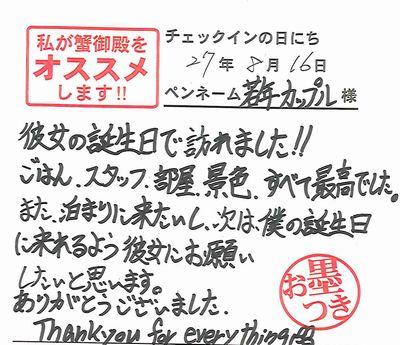 私が蟹御殿を
オススメ
します!!
チェックインの日にち
27年 8月 16日
ペンネーム 若年カップル 様
彼女の誕生日で訪れました!!
ごはん、スタッフ、部屋、景色、すべて最高でした。
また、泊まりに来たいし、次は、僕の誕生日
に来れるよう彼女にお願い
したいと思います。
ありがとうございました。
Thank you for everything
お墨つき